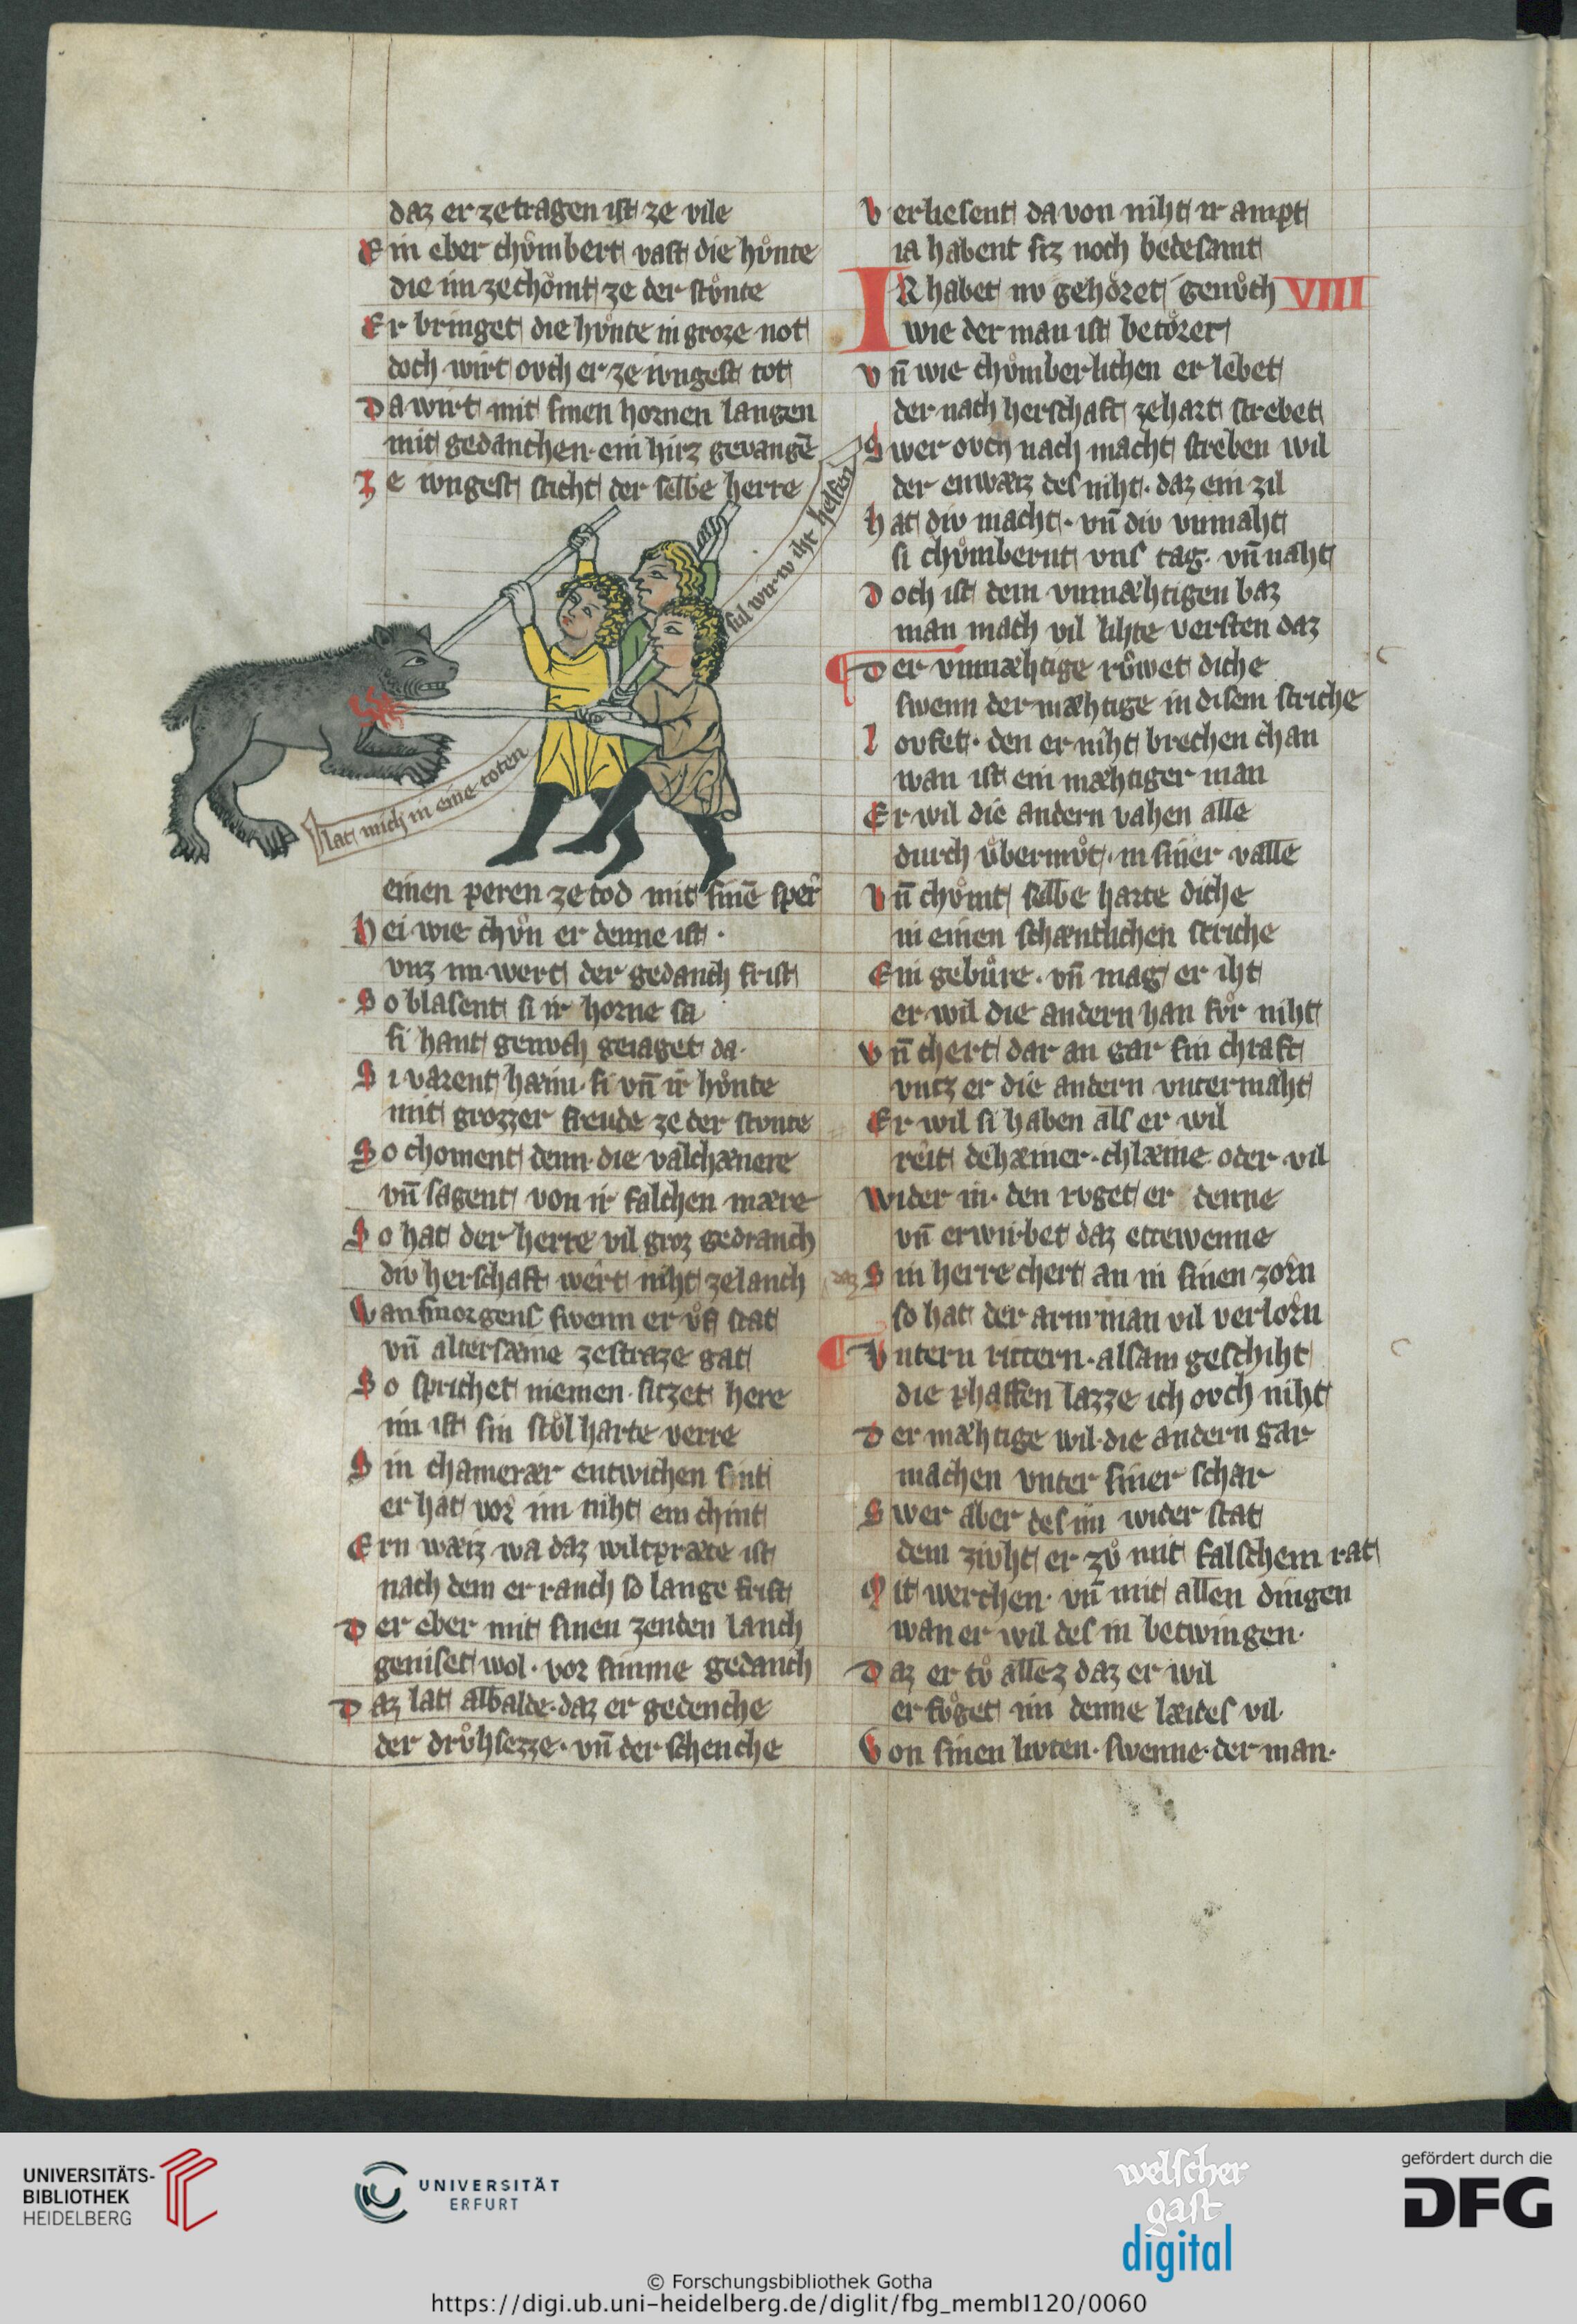 daz er zetragen ist ze vile
Ein eber chv̊mbert vast die hv̊nte
die im zechomt ze der stv̊nte
Er bringet die hv̊nte in groze not
doch wirt ovch er ze ivngest tot
Da wirt mit sinen hornen langen
mit gedanchen ein hirz gevangē
Ze ivngest sticht der selbe herre
sul wir iv iht helfen
lat mich in eine toten
einen peren ze tod mit sinē sper
Hei wie chv̊n er denne ist ·
vnz im wert der gedanch frist
So blasent si ir horne sa
si hant genvch geiaget da·
Si varent hæim · si vn̄ ir hv̊nte
mit grozzer freude ze der stvnte
So choment denn die valchænere
vn̄ sagent von ir falchen mære
So hat der herre vil groz gedranch
div herschaft wert niht zelanch
Wan smorgens swenn er v̊f stat
vn̄ altersæine zestraze gat
So sprichet niemen · sitzet here
im ist sin stv̊l harte verre
Sin chamerær entwichen sint
er hat vor im niht ein chint
Ern wæiz wa daz wiltpræte ist
nach dem er ranch so lange frist
Der eber mit sinen zenden lanch
geniset wol · vor sinme gedanch
Daz lat albalde · daz er gedenche
der drv̊hsezze · vn̄ der schenche
Verliesent da von niht ir ampt
ia habent siz noch bedesamt
IR habet nv gehöret genv̊ch VIIII
wie der man ist betörer
Vn̄ wie chv̊mberlichen er lebet
der nach herschaft zehart strebet
Swer ovch nach macht streben wil
der enwæiz des niht · daz ein zil
hat div macht · vn̄ div vnmaht
si chv̊mbernt vns tag · vn̄ naht
Doch ist dem vnmæhtigen baz
man mach vil lihte versten daz
Der vnmæhtige rv̊wet diche
swenn der mæhtige in disem striche
lovfet · den er niht brechen chan
wan ist ein mæhtiger man
Er wil die andern vahen alle
durch v̊bermv̊t · in siner valle
Vn̄ chv̊mt selbe harte diche
in einen schæntlichen striche
Ein gebv̊re · vn̄ mag er iht
er wil die andern han fv̊r niht
Vn̄ chert dar an gar sin chraft
vntz er die andern vntermaht
Er wil si haben als er wil
reit dehæiner · chlæine oder vil
Wider in · den rvget er denne
vn̄ erwirbet daz ettewenne
daz Sin herre chert an in sinen zorn
so hat der arm man vil verlorn
Vntern rittern · alsam geschiht
die phaffen lazze ich ovch niht
Der mæhtige wil die andern gar
machen vnter siner schar
Swer aber des im wider stat
dem zivht er zv̊ mit falschem rat
Mit werchen · vn̄ mit allen dingen
wan er wil des in betwingen·
Daz er tv̊ allez daz er wil
er fv̊get im denne læides vil·
Von sinen livten · swenne der man·
UNIVERSITÄTS-
BIBLIOTHEK
HEIDELBERG
UNIVERSITÄT
ERFURT
welscher
gast
digital
gefördert durch die
DFG
© Forschungsbibliothek Gotha
https://digi.ub.uni-heidelberg.de/diglit/fbg_membI120/0060